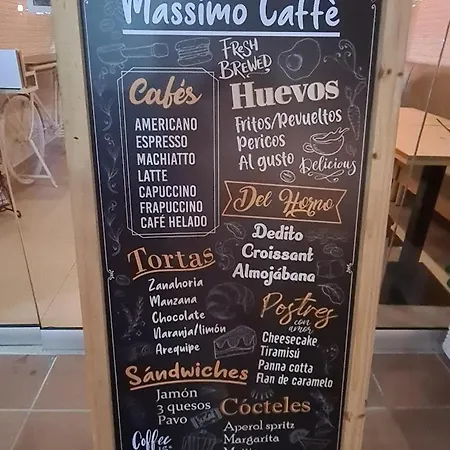 Massimo Caffè
FRESH
BREWED
Cafés
AMERICANO
ESPRESSO
MACHIATTO
LATTE
CAPUCCINO
FRAPUCCINO
CAFÉ HELADO
Huevos
Fritos/Revueltos
Pericos
Al gusto
Delicious
Del Horno
Dedito
Croissant
Almojábana
Tortas
Zanahoria
Manzana
Chocolate
Naranja/limón
Arequipe
Postres
con
amor
Cheesecake
Tiramisú
Panna cotta
Flan de caramelo
Sándwiches
Jamón
3 quesos
Pavo
Cócteles
Aperol spritz
Margarita
Coffee